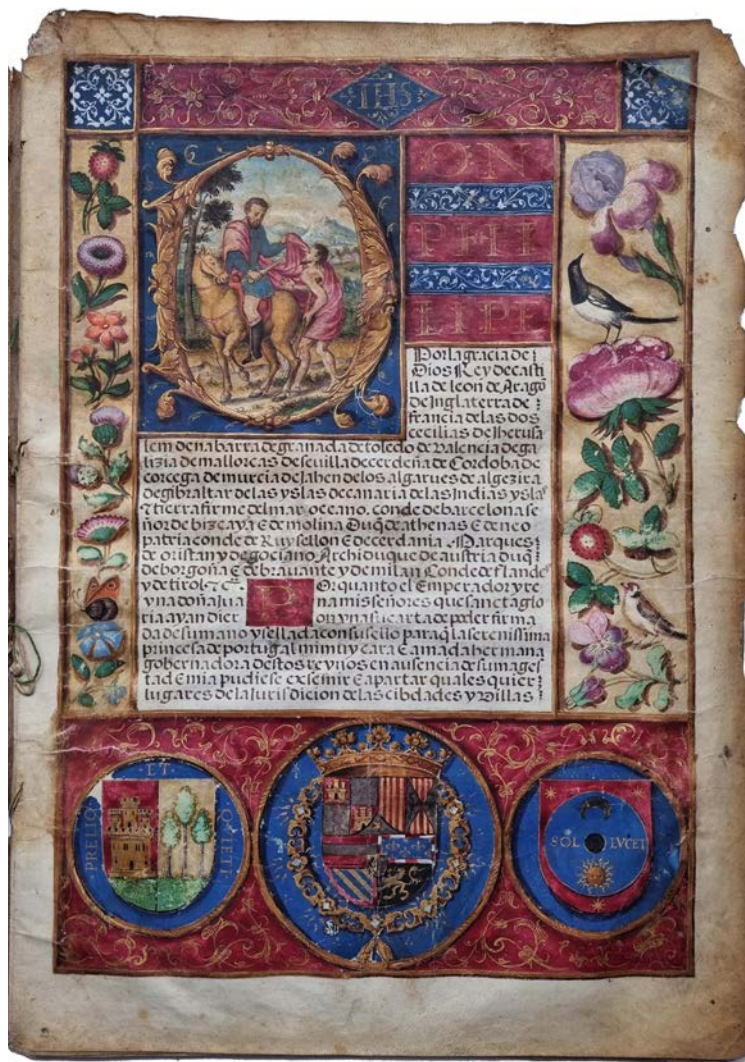 IHS
DON
PHI
LIPE
Por la gracia de
Dios Rey de casti
lla de leon de Arago
de Inglaterra de
francia de las dos
cecilias de Iherusa
lem de nabarra de granada de toledo de Valencia de ga
lizia de mallorcas de sevilla de cerdeña de Cordoba de
corcega de murcia de Iahen de los algarues de algezira
de gibraltar de las yslas de canaria de las Indias ysla
⁊ tierra firme del mar oceano. conde de barcelona se
ñor de bizcaya E de molina Duq̃ de athenas E de neo
patria conde de Ruysellon E de cerdania. Marques
de oristan y de gociano Archiduque de austria duq̃
de borgoña E de brauante y de milan Conde de flande
y de tirol ⁊ cᵃ. POr quanto el Emperador y re
yna doña Jua na mis señores que sancta glo
ria ayan dier on vna su carta de poder firma
da de su mano y sellada con su sello para q̃ la serenissima
princesa de portugal mi muy cara E amada hermana
gobernadora destos reynos en ausencia de su mages
tad E mia pudiese exsemir E apartar quales quier
lugares de la Iurisdicion de las cibdades y Villas
PRELIO ET QVIETI
SOL LVCET